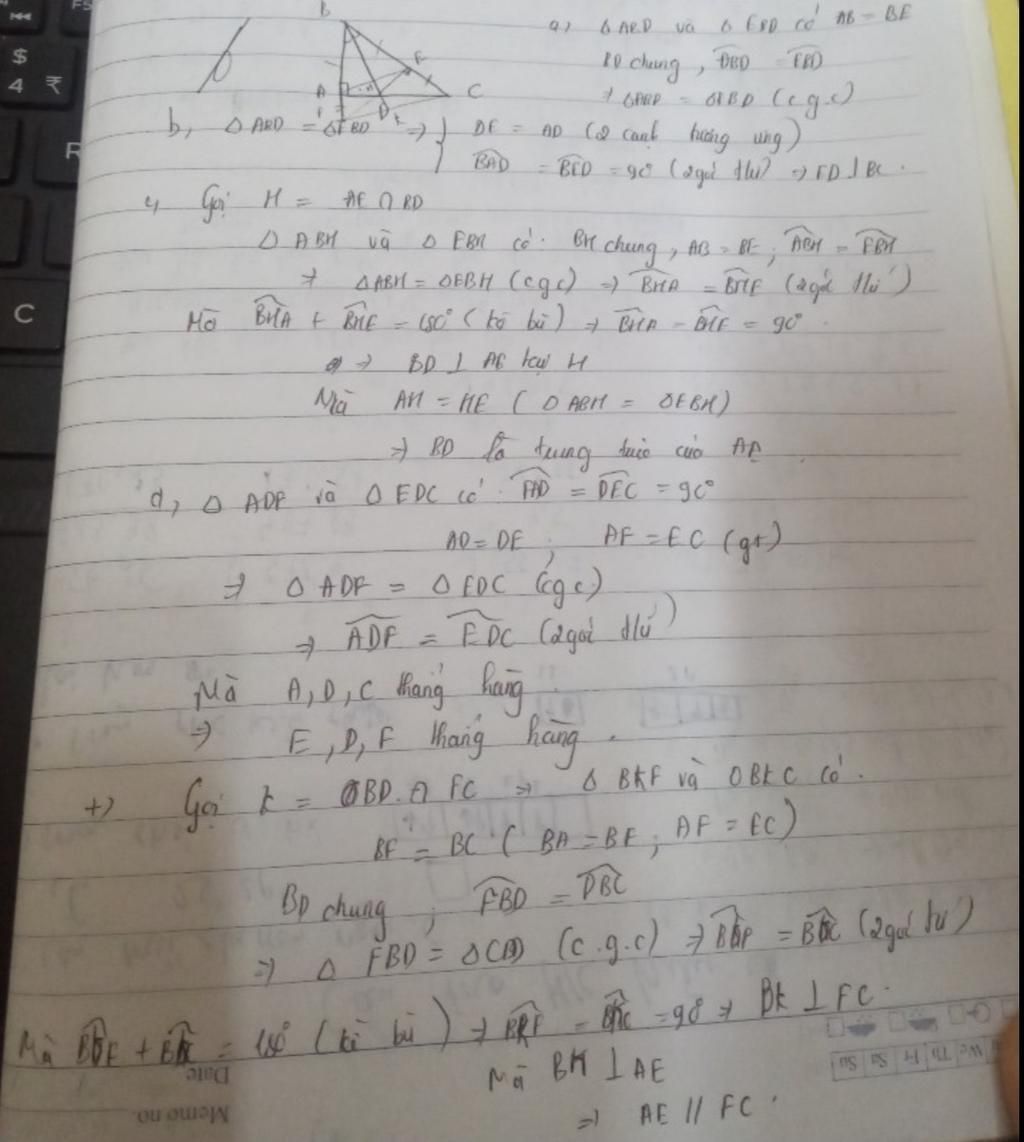 B
E
A
C
D
F
a, Δ ABD và Δ EBD có AB = BE
BD chung, DBD = EBD
⇒ ΔABD = ΔEBD (c g.c)
b, Δ ABD = ΔEBD ⇒ } DE = AD (2 cạnh tương ứng)
BAD = BED = 90° (2 góc t/ứ) ⇒ ED ⊥ BC.
c, Gọi H = AE ∩ BD
Δ ABH và Δ EBH có. BH chung, AB = BE, ABH = EBH
⇒ ΔABH = ΔEBH (c g c) ⇒ BHA = BHE (2góc t/ứ)
Mà BHA + BHE = 180° (kề bù) ⇒ BHA = BHE = 90°.
⇒ BD ⊥ AE tại H
Mà AH = HE ( Δ ABH = ΔEBH)
⇒ BD là trung trực của AE
d, Δ ADF và Δ EDC có. FAD = DEC = 90°
AD = DE ; AF = EC (gt)
⇒ Δ ADF = Δ EDC (c g c)
⇒ ADF = EDC (2góc t/ứ)
Mà A, D, C thẳng hàng
⇒ E, D, F thẳng hàng.
+) Gọi K = BD ∩ FC ⇒ Δ BKF và ΔBKC có.
BF = BC ( BA = BE ; AF = EC)
BD chung ; FBD = DBC
⇒ Δ FBD = ΔCBD (c.g.c) ⇒ = (2góc t/ứ)
Mà + = 180° (kề bù) ⇒ BKF = BKC = 90° ⇒ BK ⊥ FC.
Mà BH ⊥ AE
⇒ AE // FC.
Memo no.
Date
We Th Fr Sa Su
F5
$
4 ₹
R
C